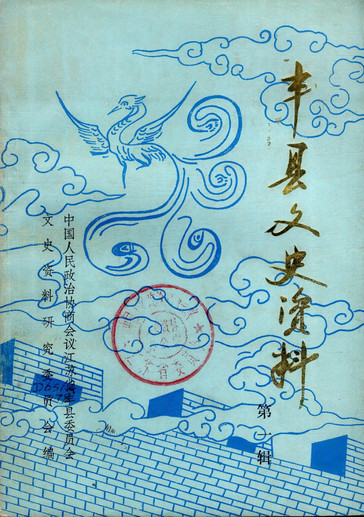 丰县文史资料
第一辑
中国人民政治协商会议江苏省丰县委员会
文史资料研究委员会编